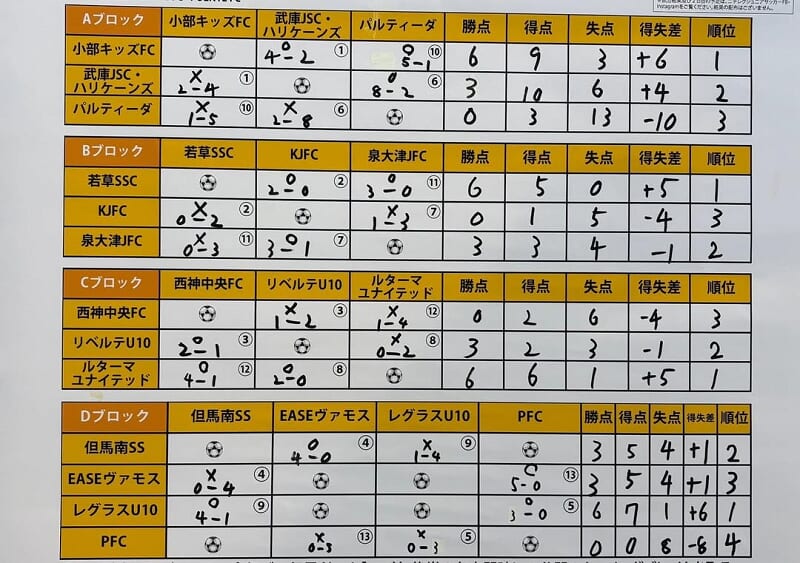 Aブロック 小部キッズFC 武庫JSC・ハリケーンズ パルティーダ 勝点 得点 失点 得失差 順位
小部キッズFC ○ 4-2 ① ○ 5-1 ⑩ 6 9 3 +6 1
武庫JSC・ハリケーンズ × 2-4 ① ○ 8-2 ⑥ 3 10 6 +4 2
パルティーダ × 1-5 ⑩ × 2-8 ⑥ 0 3 13 -10 3
Bブロック 若草SSC KJFC 泉大津JFC 勝点 得点 失点 得失差 順位
若草SSC ○ 2-0 ② ○ 3-0 ⑪ 6 5 0 +5 1
KJFC × 0-2 ② × 1-3 ⑦ 0 1 5 -4 3
泉大津JFC × 0-3 ⑪ ○ 3-1 ⑦ 3 3 4 -1 2
Cブロック 西神中央FC リベルテU10 ルターマユナイテッド 勝点 得点 失点 得失差 順位
西神中央FC × 1-2 ③ × 1-4 ⑫ 0 2 6 -4 3
リベルテU10 ○ 2-1 ③ × 0-2 ⑧ 3 2 3 -1 2
ルターマユナイテッド ○ 4-1 ⑫ ○ 2-0 ⑧ 6 6 1 +5 1
Dブロック 但馬南SS EASEヴァモス レグラスU10 PFC 勝点 得点 失点 得失差 順位
但馬南SS ○ 4-0 ④ × 1-4 ⑨ 3 5 4 +1 2
EASEヴァモス × 0-4 ④ ○ 5-0 ⑬ 3 5 4 +1 3
レグラスU10 ○ 4-1 ⑨ ○ 3-0 ⑤ 6 7 1 +6 1
PFC × 0-5 ⑬ × 0-3 ⑤ 0 0 8 -8 4